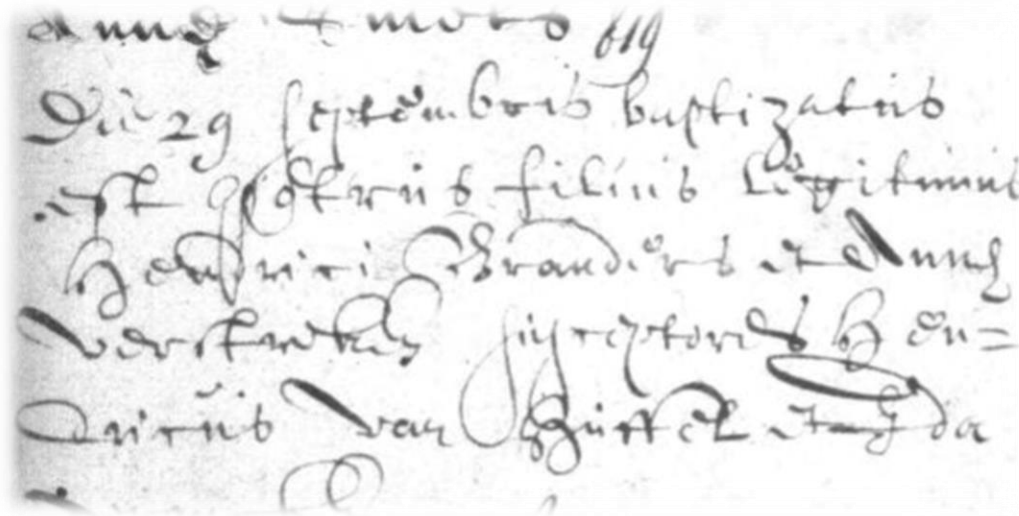 Annæ Smets 619
Die 29 septembris baptizatus
est petrus filius Legitimus
Henrici Branders et Annæ
Verstreken susceptores Hen=
ricus van Hüffel et Ida